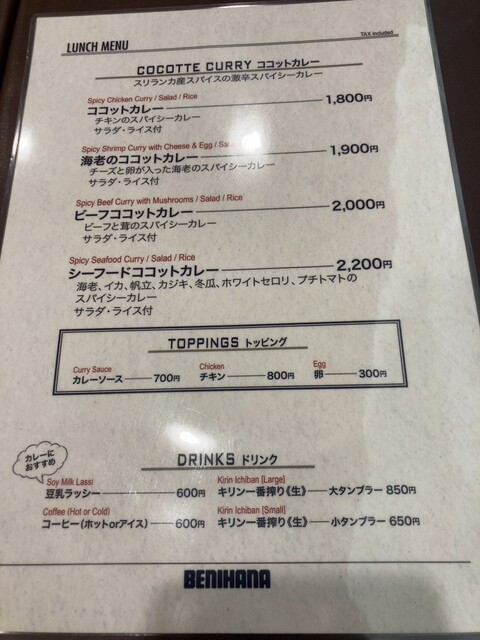 LUNCH MENU
TAX included
COCOTTE CURRY ココットカレー
スリランカ産スパイスの激辛スパイシーカレー
Spicy Chicken Curry / Salad / Rice
ココットカレー 1,800円
チキンのスパイシーカレー
サラダ・ライス付
Spicy Shrimp Curry with Cheese & Egg /
海老のココットカレー 1,900円
チーズと卵が入った海老のスパイシーカレー
サラダ・ライス付
Spicy Beef Curry with Mushrooms / Salad / Rice
ビーフココットカレー 2,000円
ビーフと茸のスパイシーカレー
サラダ・ライス付
Spicy Seafood Curry / Salad / Rice
シーフードココットカレー 2,200円
海老、イカ、帆立、カジキ、冬瓜、ホワイトセロリ、プチトマトの
スパイシーカレー
サラダ・ライス付
TOPPINGS トッピング
Curry Sauce Chicken Egg
カレーソース 700円 チキン 800円 卵 300円
DRINKS ドリンク
カレーに
おすすめ
Soy Milk Lassi Kirin Ichiban [Large]
豆乳ラッシー 600円 キリン一番搾り《生》 大タンブラー 850円
Coffee (Hot or Cold) Kirin Ichiban [Small]
コーヒー(ホットorアイス) 600円 キリン一番搾り《生》 小タンブラー 650円
BENIHANA